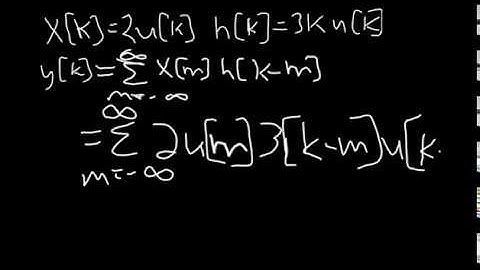 x[k]=2u[k] h[k]=3k u[k]
y[k]=∑_{m=-∞}^{∞} x[m] h[k-m]
=∑_{m=-∞}^{∞} 2u[m]3[k-m]u[k.